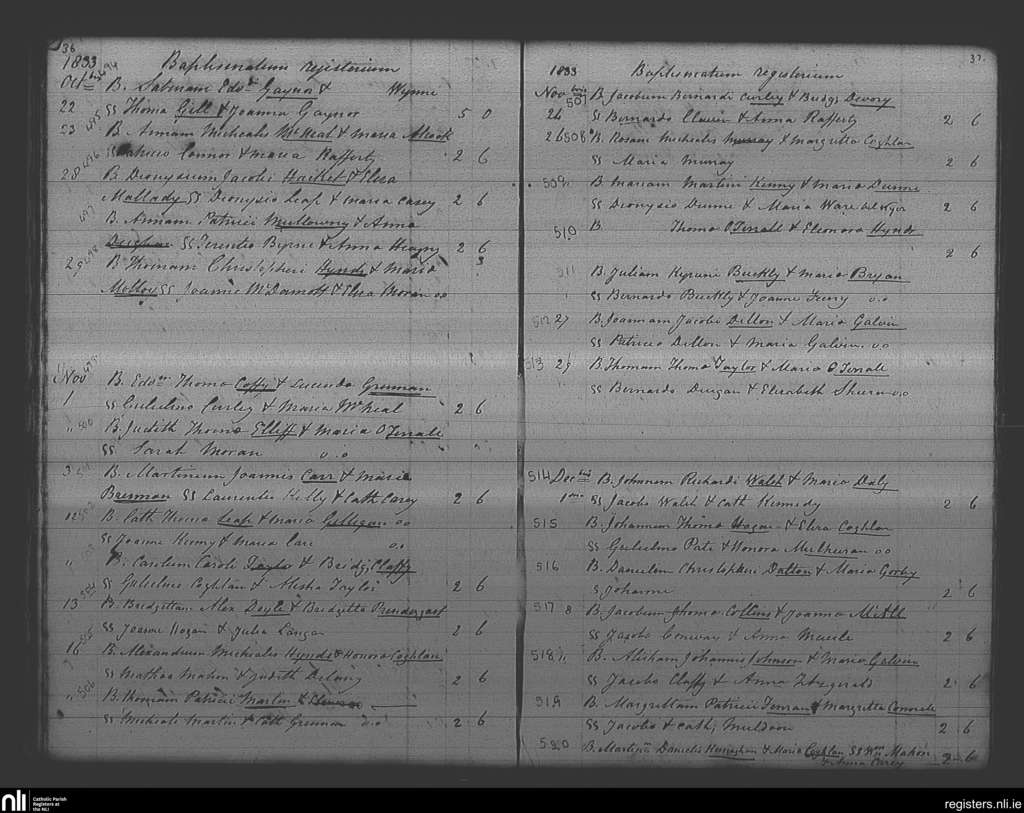 36
1833 Baptismatum registorium
Octb 494 B. Edwd Gaynor & Wynne
22 495 SS Thoma Gill & Joanna Gaynor 5 0
23 B. Annam Michealis McNeal & Maria
496 SS Patricio Connor & Maria Rafferty 2 6
28 B. Dionysium Jacobi Hacket & Eliza
497 Mallady SS Dionysio Leap & Maria Casey 2 6
B. Annam Patricii Mullowny & Anna
498 SS Terentio Byrne & Anna Heany 2 6
29 B Thomam Christopheri Hynds & Maria 3
Molloy SS Joanne McDarnott & Eliza Moran oo
499
Nov B. Edwm Thoma Coffy & Lucinda Grennan
1 SS Gulielmo Curley & Maria McNeal 2 6
" 500 B. Judith Thoma Elliff & Maria O Ferrall
SS Sarah Moran o.o
3 501 B. Martinum Joannis Carr & Maria
Brennan SS Laurentio Kelly & Cath Carey 2 6
12 502 B. Cath Thoma Leap & Maria Gilligan oo
SS Joanne Kenny & Maria Carr o.o
" 503 B. Carolum Caroli Taylor & Bridgt Claffy
504 SS Gulielmo Coghlan & Alesha Taylor 2 6
13 B. Bridgittam Alex Doyle & Bridgitta Prendergast
505 SS Joanne Hogan & Julia Langan 2 6
16 B. Alexandrum Michealis Hynds & Honora Coghlan
SS Mathias Mahon & Judith Delany 2 6
" 506 B. Thomam Patricii Martin &
SS Micheale Martin & Cath Grennan o.o 2 6
37.
1833 Baptismatum registorium
Novbris 507 B. Jacobum Bernardi Curley & Bridgt Devory
24 SS Bernardo & Anna Rafferty 2 6
26 508 B. Rosam Michealis Murray & Margretta Coghlan
SS Maria Murray 2 6
509 B. Mariam Martini Kenny & Maria Dunne
SS Dionysio Dunne & Maria Ware 2 6
510 B. Thoma O Ferrall & Eleonora Hynds
2 6
511 B. Juliam Kyrani Buckly & Maria Bryan
SS Bernardo Buckly & Joanne o.o
512 27 B. Joannam Jacobi Dillon & Maria Galvin
SS Patricio Dillon & Maria Galvin o.o
513 29 B. Thomam Thoma Taylor & Maria O Ferrall
SS Bernardo Durgan & Elizabeth o.o
514 Decbris B. Johannem Richardi Walsh & Maria Daly
1mo SS Jacobo Walsh & Cath Kennedy 2 6
515 B. Johannem Thoma Hogan & Eliza Coghlan
SS Gulielmo Pate & Honora Mulheran oo
516 B. Danielem Christopheri Dalton & Maria Gorby
S Johanne 2 6
517 8 B. Jacobum Thoma Collins & Joanna
SS Jacobo Conway & Anna 2 6
518 11 B. Johannis Johnson & Maria Galvin
SS Jacobo Claffy & Anna Fitzgerald 2 6
519 B. Margrettam Patricii & Margretta
SS Jacobo & Cath, Muldoon 2 6
520 B. Martinm Danielis & Maria Coghlan SS Wm Mahon
& Anna Carey 2 6
nli
Catholic Parish
Registers at
the NLI
registers.nli.ie